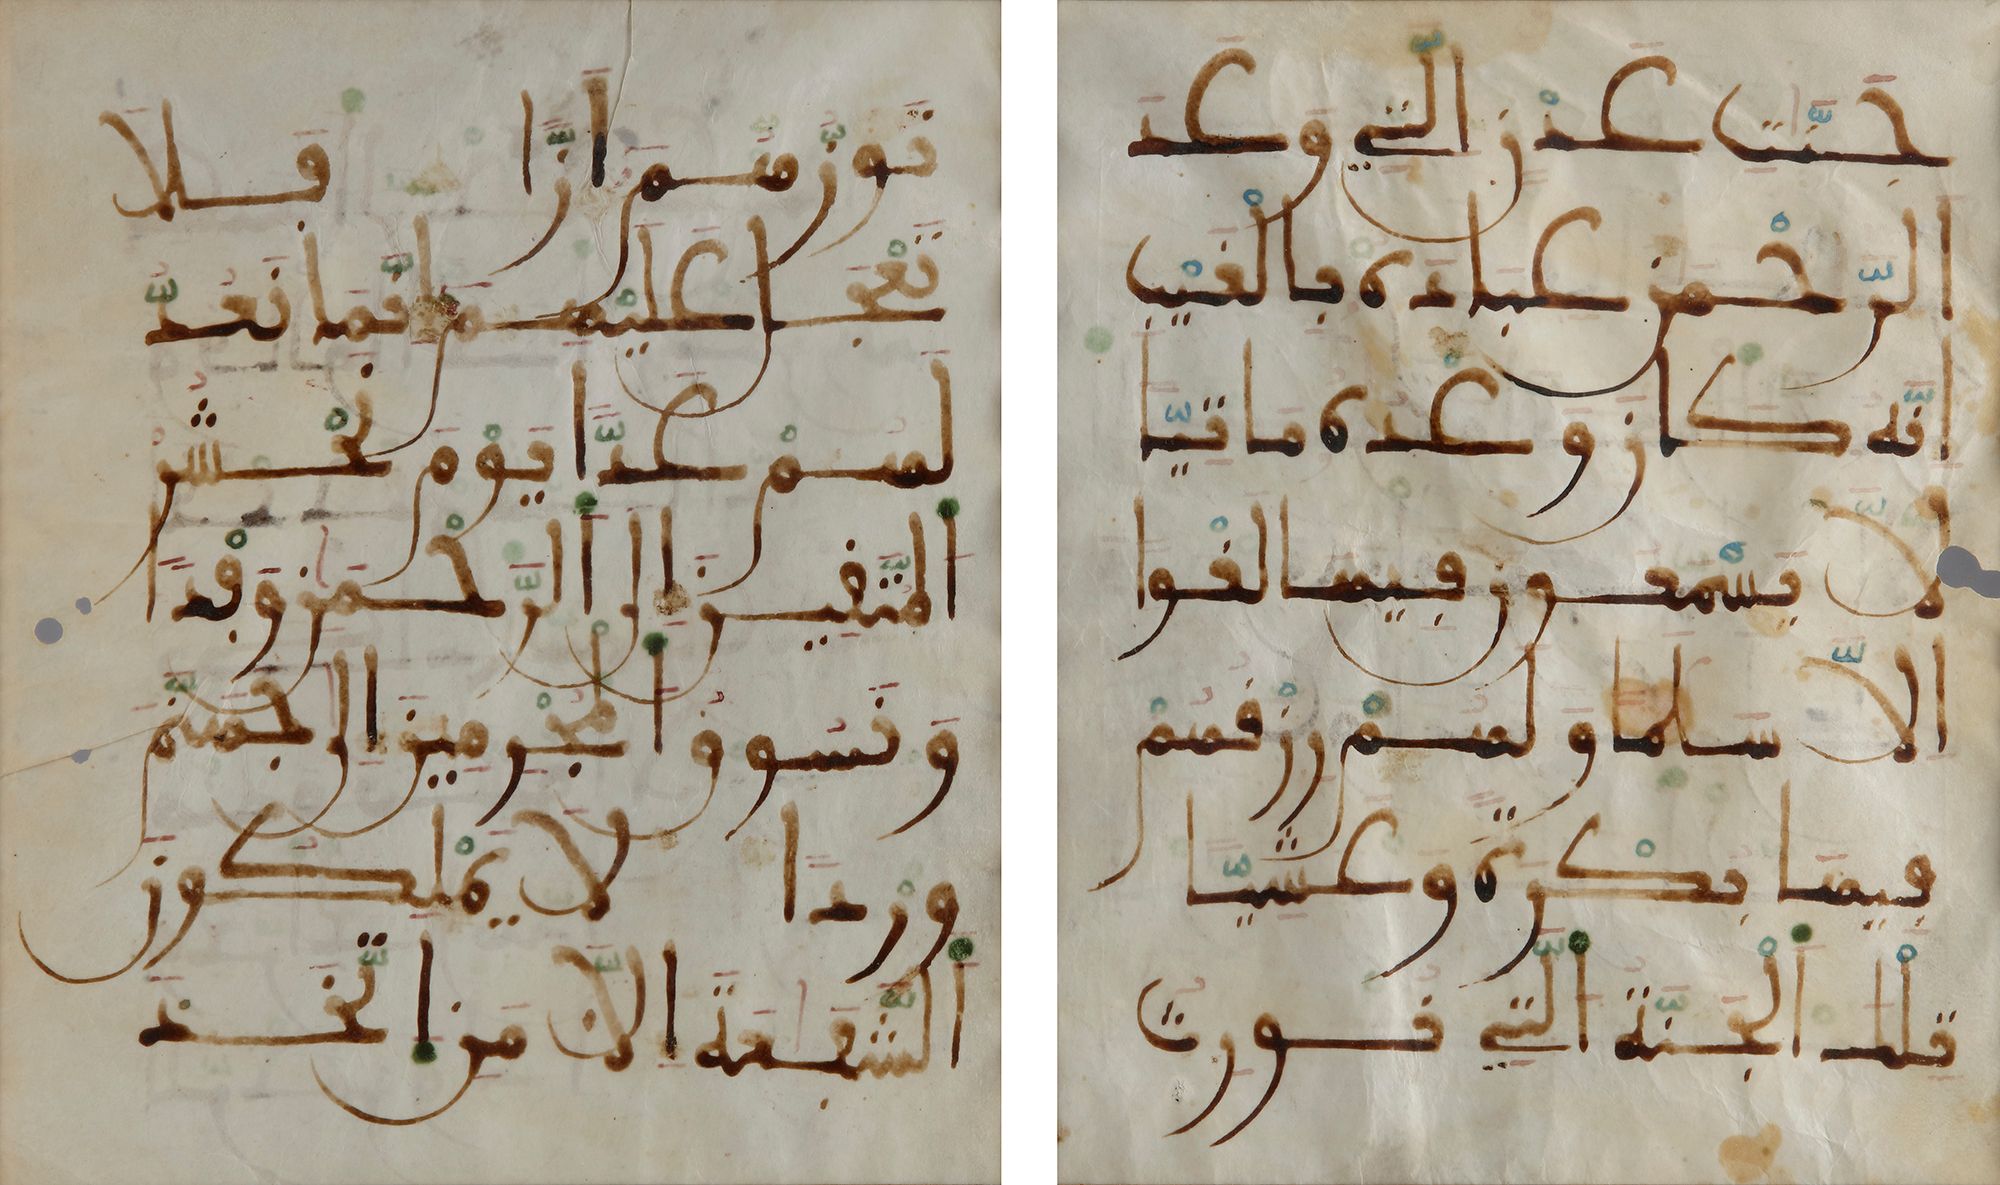 جَنَّٰتِ عَدْنٍ الَّتِي وَعَدَ
الرَّحْمَٰنُ عِبَادَهُ بِالْغَيْبِ
إِنَّهُ كَانَ وَعْدُهُ مَاتِيًّا
لَا يَسْمَعُونَ فِيهَا لَغْوًا
إِلَّا سَلَٰمًا وَلَهُمْ رِزْقُهُمْ
فِيهَا بُكْرَةً وَعَشِيًّا
تِلْكَ الْجَنَّةُ الَّتِي نُورِثُ
تَؤُزُّهُمْ أَزًّا فَلَا
تَعْجَلْ عَلَيْهِمْ إِنَّمَا نَعُدُّ
لَهُمْ عَدًّا يَوْمَ نَحْشُرُ
الْمُتَّقِينَ إِلَى الرَّحْمَٰنِ وَفْدًا
وَنَسُوقُ الْمُجْرِمِينَ إِلَىٰ جَهَنَّمَ
وِرْدًا لَا يَمْلِكُونَ
الشَّفَٰعَةَ إِلَّا مَنِ اتَّخَذَ